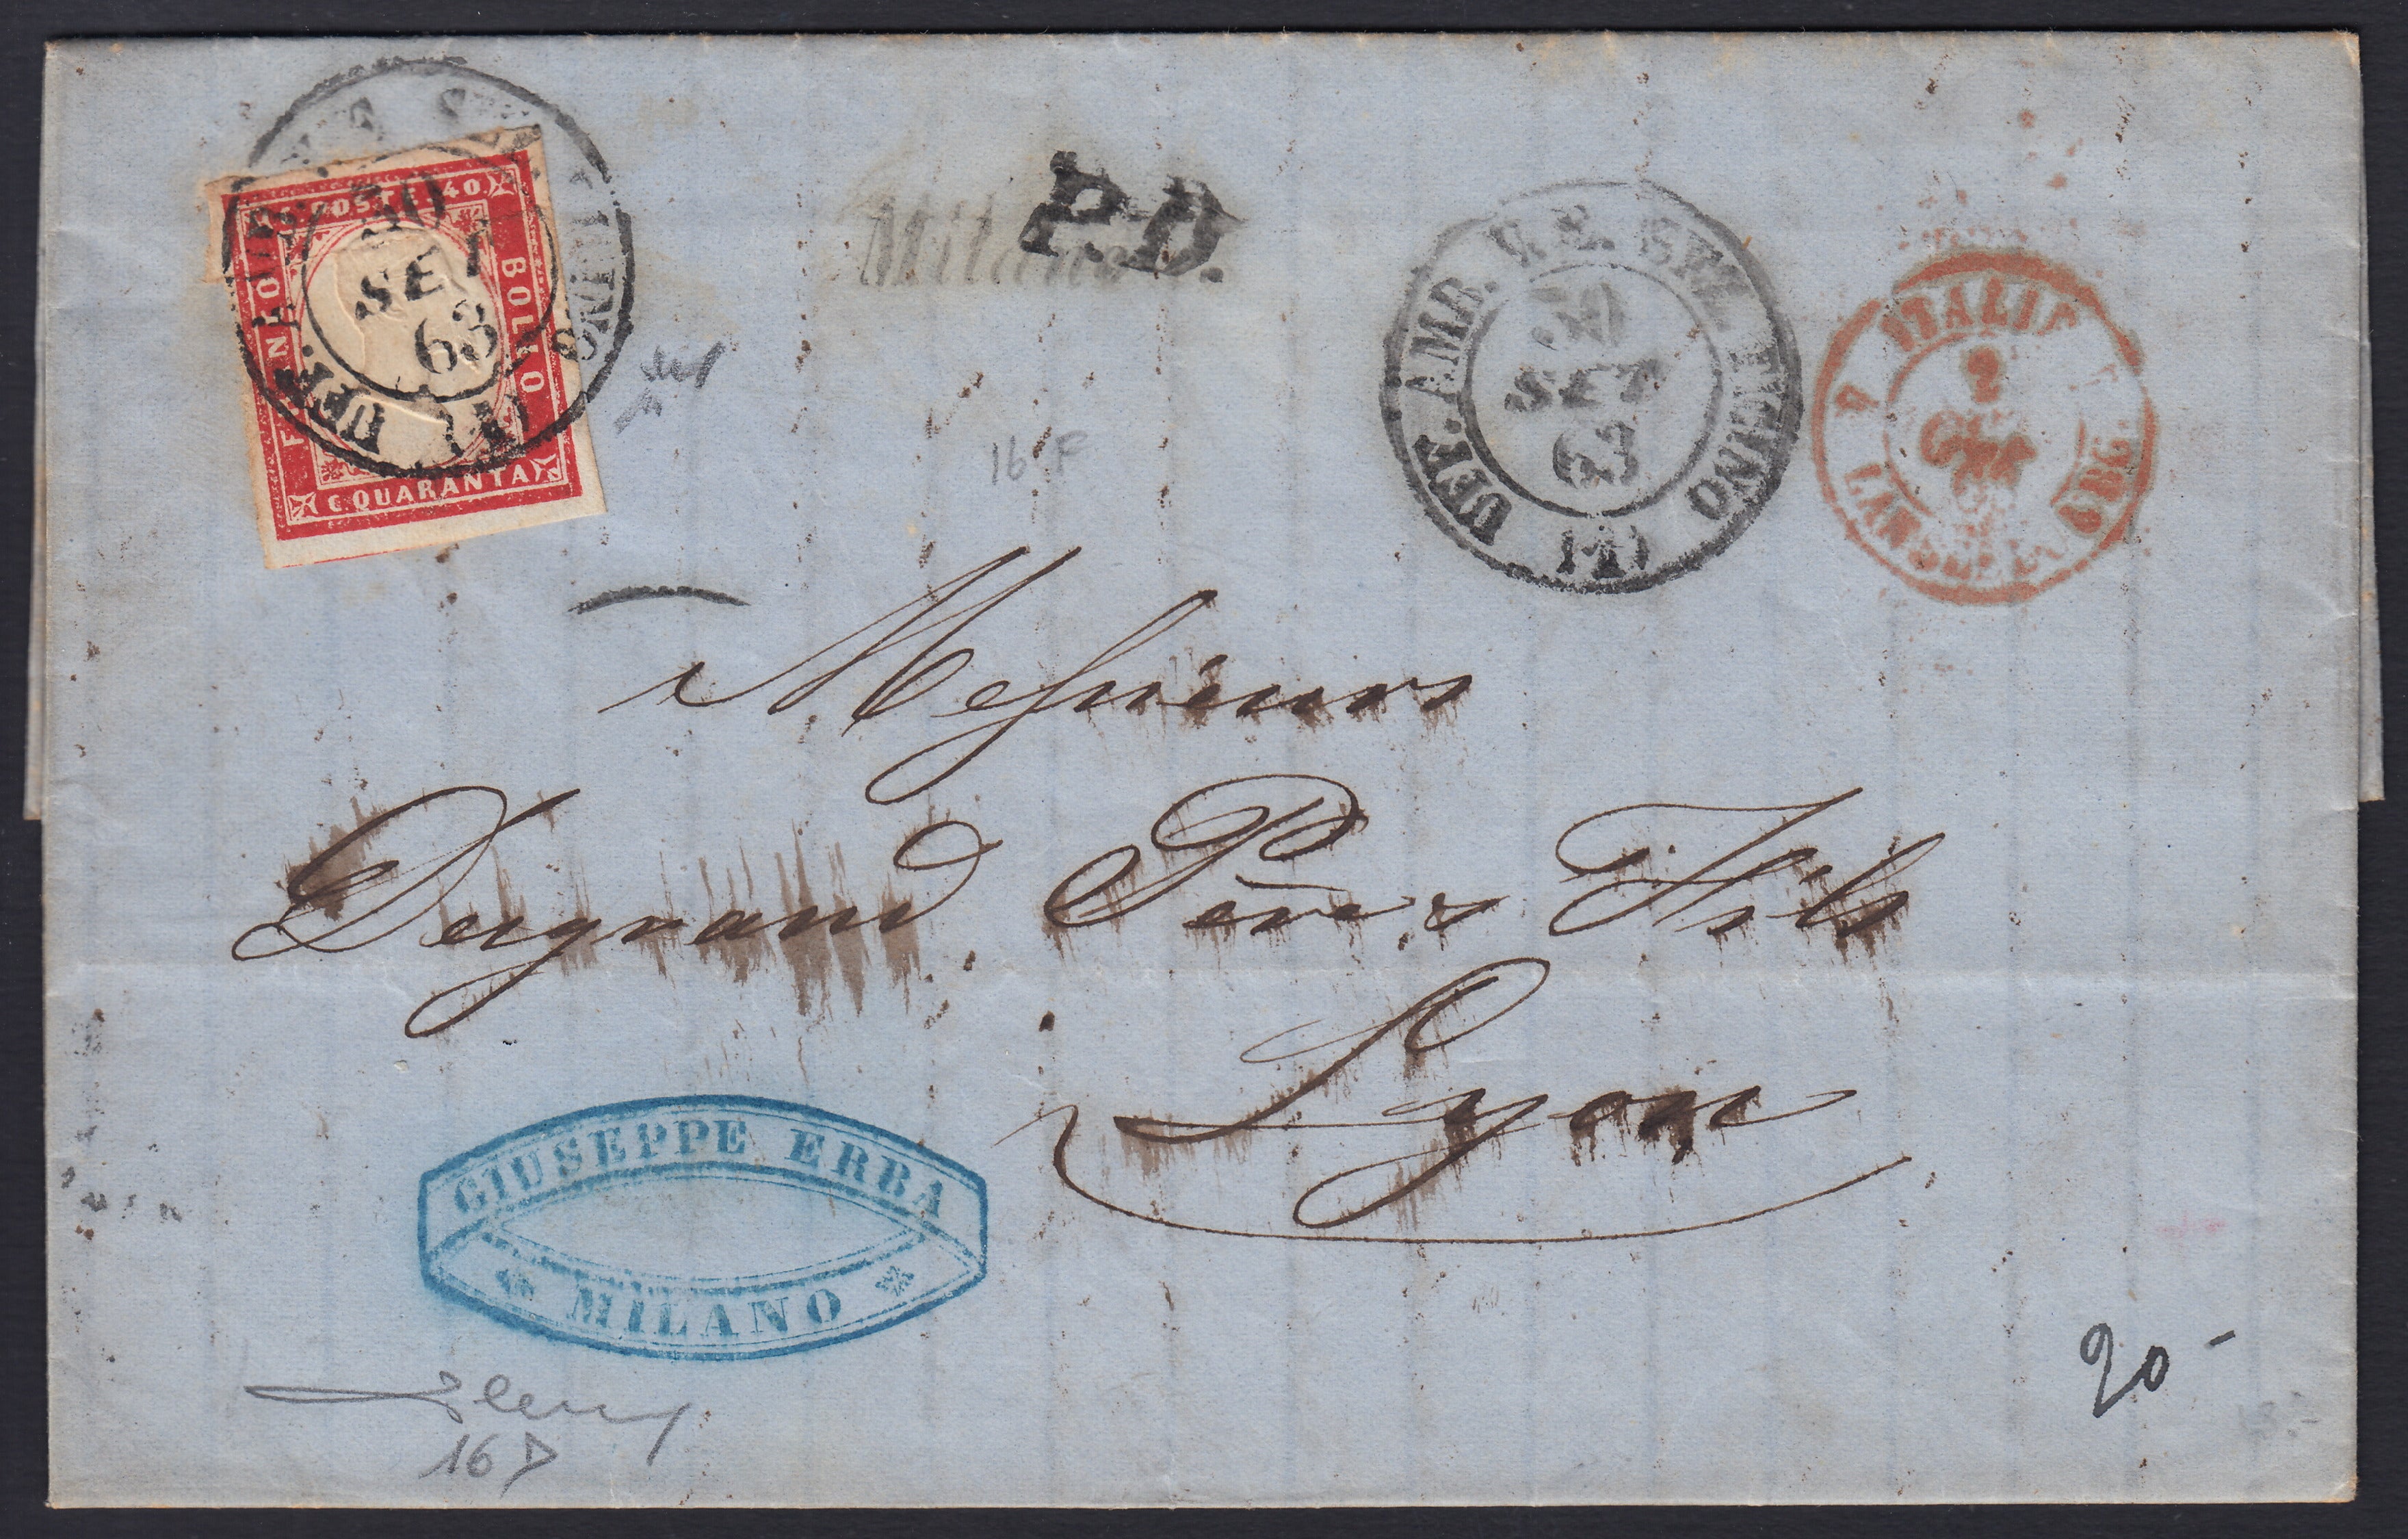 C. POSTE 40
FRANCO
BOLLO
C. QUARANTA
30
SET
63
UFF.
(1)
Milano
P.D.
UFF. AMB. V. E. SEZ. TICINO
30
SET
63
(1)
ITALIE
2
16 F
Messieurs
Dugrand, Père & Fils
Lyon
GIUSEPPE ERBA
MILANO
16 D
20-